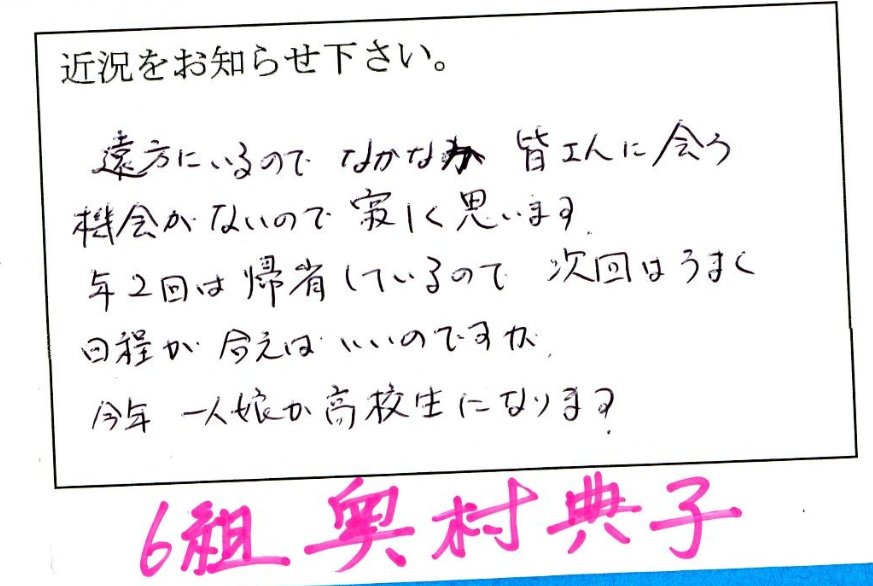 近況をお知らせ下さい。
遠方にいるので なかなか 皆さんに会う
機会がないので 寂しく思います。
年2回は帰省しているので 次回はうまく
日程が合えばいいのですが、
今年 一人娘が高校生になります。
6組 奥村典子